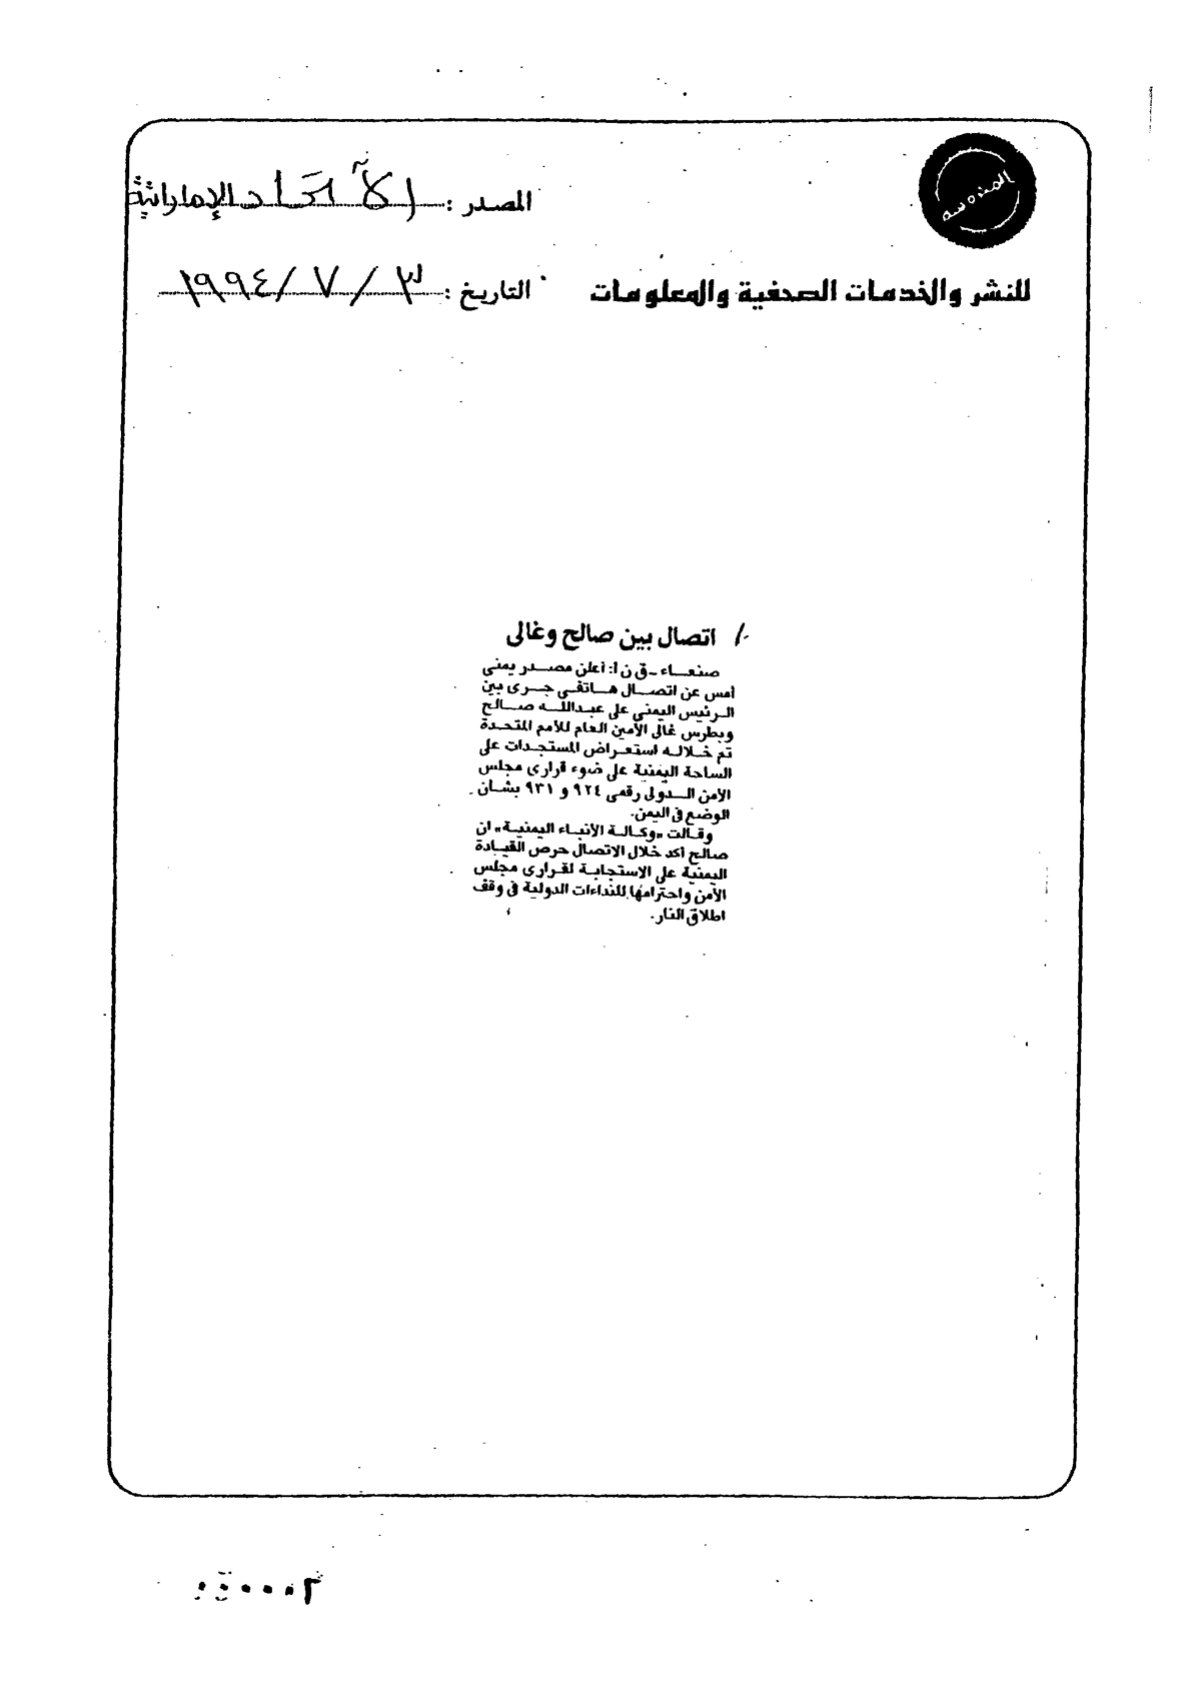 المصدر : الاتحاد الإماراتية
للنشر والخدمات الصحفية والمعلومات
التاريخ : ٣ / ٧ / ١٩٩٤
اتصال بين صالح وغالى
صنعاء - ق ن أ: أعلن مصدر يمنى
أمس عن اتصال هاتفى جرى بين
الرئيس اليمنى على عبدالله صالح
وبطرس غالى الأمين العام للأمم المتحدة
تم خلاله استعراض المستجدات على
الساحة اليمنية على ضوء قرارى مجلس
الأمن الدولى رقمى ٩٢٤ و ٩٣١ بشان
الوضع فى اليمن.
وقالت «وكالة الأنباء اليمنية» ان
صالح أكد خلال الاتصال حرص القيادة
اليمنية على الاستجابة لقرارى مجلس
الأمن واحترامها للنداءات الدولية فى وقف
اطلاق النار.